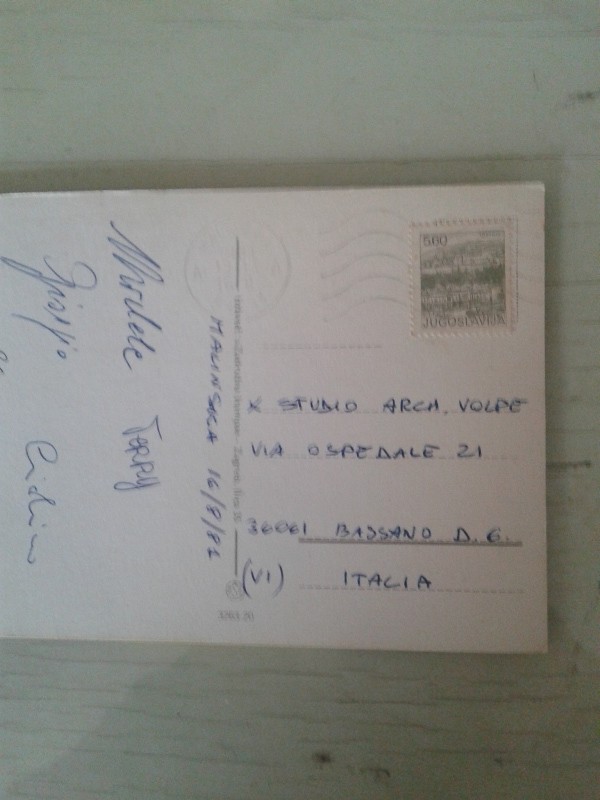 5.60
JUGOSLAVIJA
X STUDIO ARCH. VOLPE
VIA OSPEDALE 21
36061 BASSANO D. G.
(VI) ITALIA
MALINSCKA 16/8/82
3263/20
Michele Terry
Giorgio